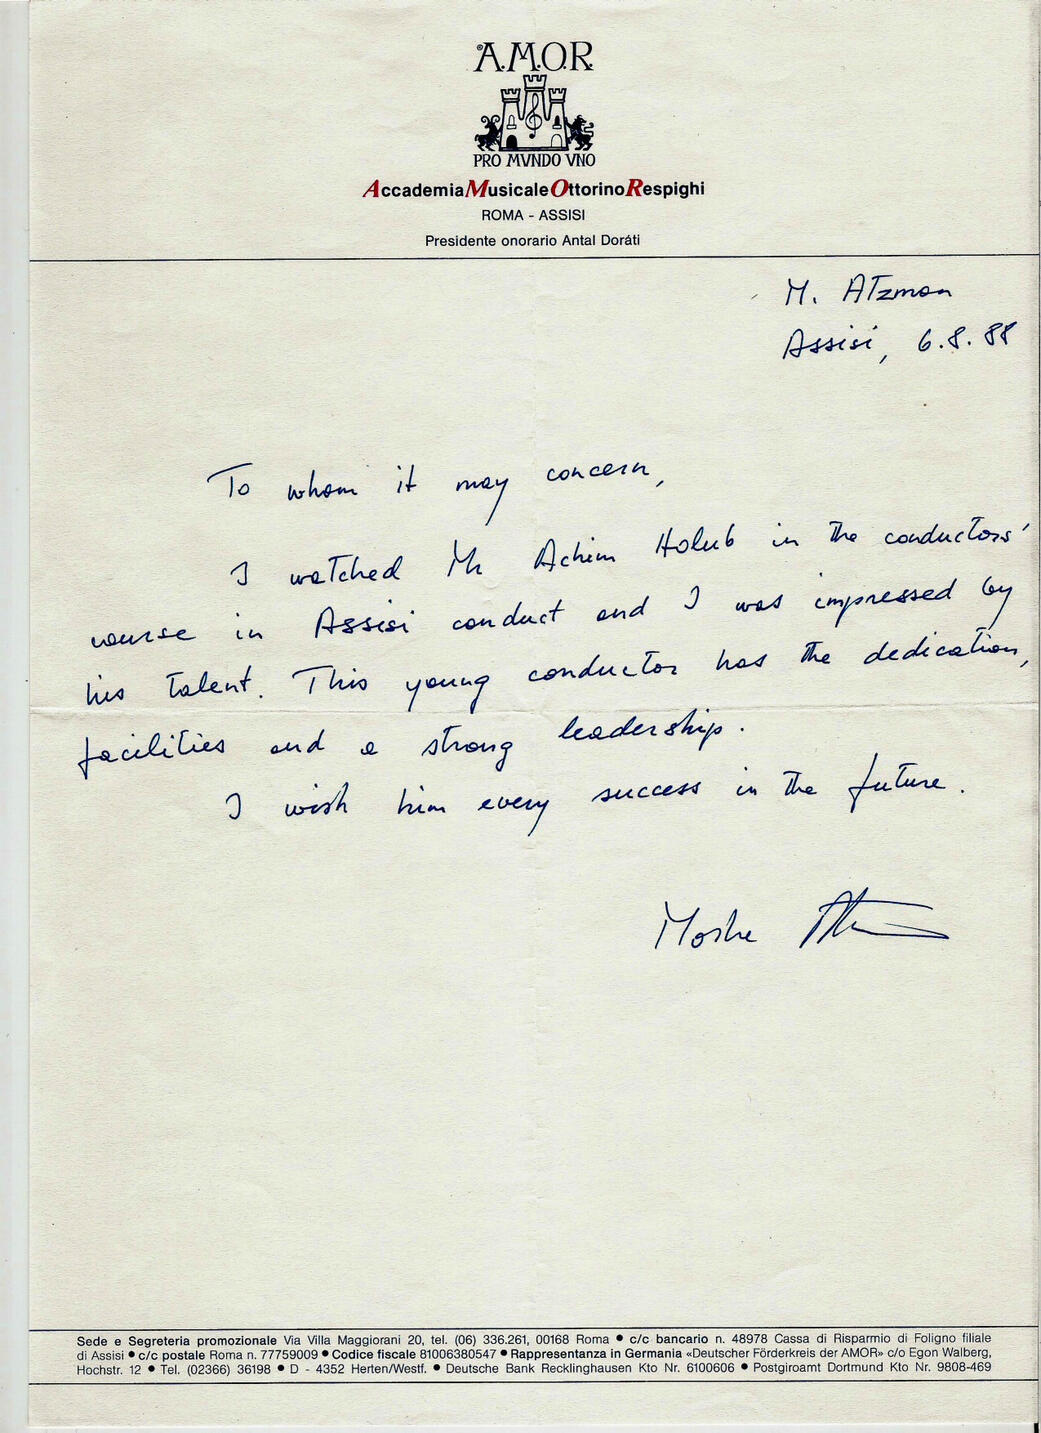 ®A.M.O.R
PRO MVNDO VNO
AccademiaMusicaleOttorinoRespighi
ROMA - ASSISI
Presidente onorario Antal Doráti
M. Atzmon
Assisi, 6.8.88
To whom it may concern,
I watched Mr Achim Holub in the conductors'
course in Assisi conduct and I was impressed by
his talent. This young conductor has the dedication,
facilities and a strong leadership.
I wish him every success in the future.
Moshe Atzmon
Sede e Segreteria promozionale Via Villa Maggiorani 20, tel. (06) 336.261, 00168 Roma ● c/c bancario n. 48978 Cassa di Risparmio di Foligno filiale
di Assisi ● c/c postale Roma n. 77759009 ● Codice fiscale 81006380547 ● Rappresentanza in Germania «Deutscher Förderkreis der AMOR» c/o Egon Walberg,
Hochstr. 12 ● Tel. (02366) 36198 ● D - 4352 Herten/Westf. ● Deutsche Bank Recklinghausen Kto Nr. 6100606 ● Postgiroamt Dortmund Kto Nr. 9808-469